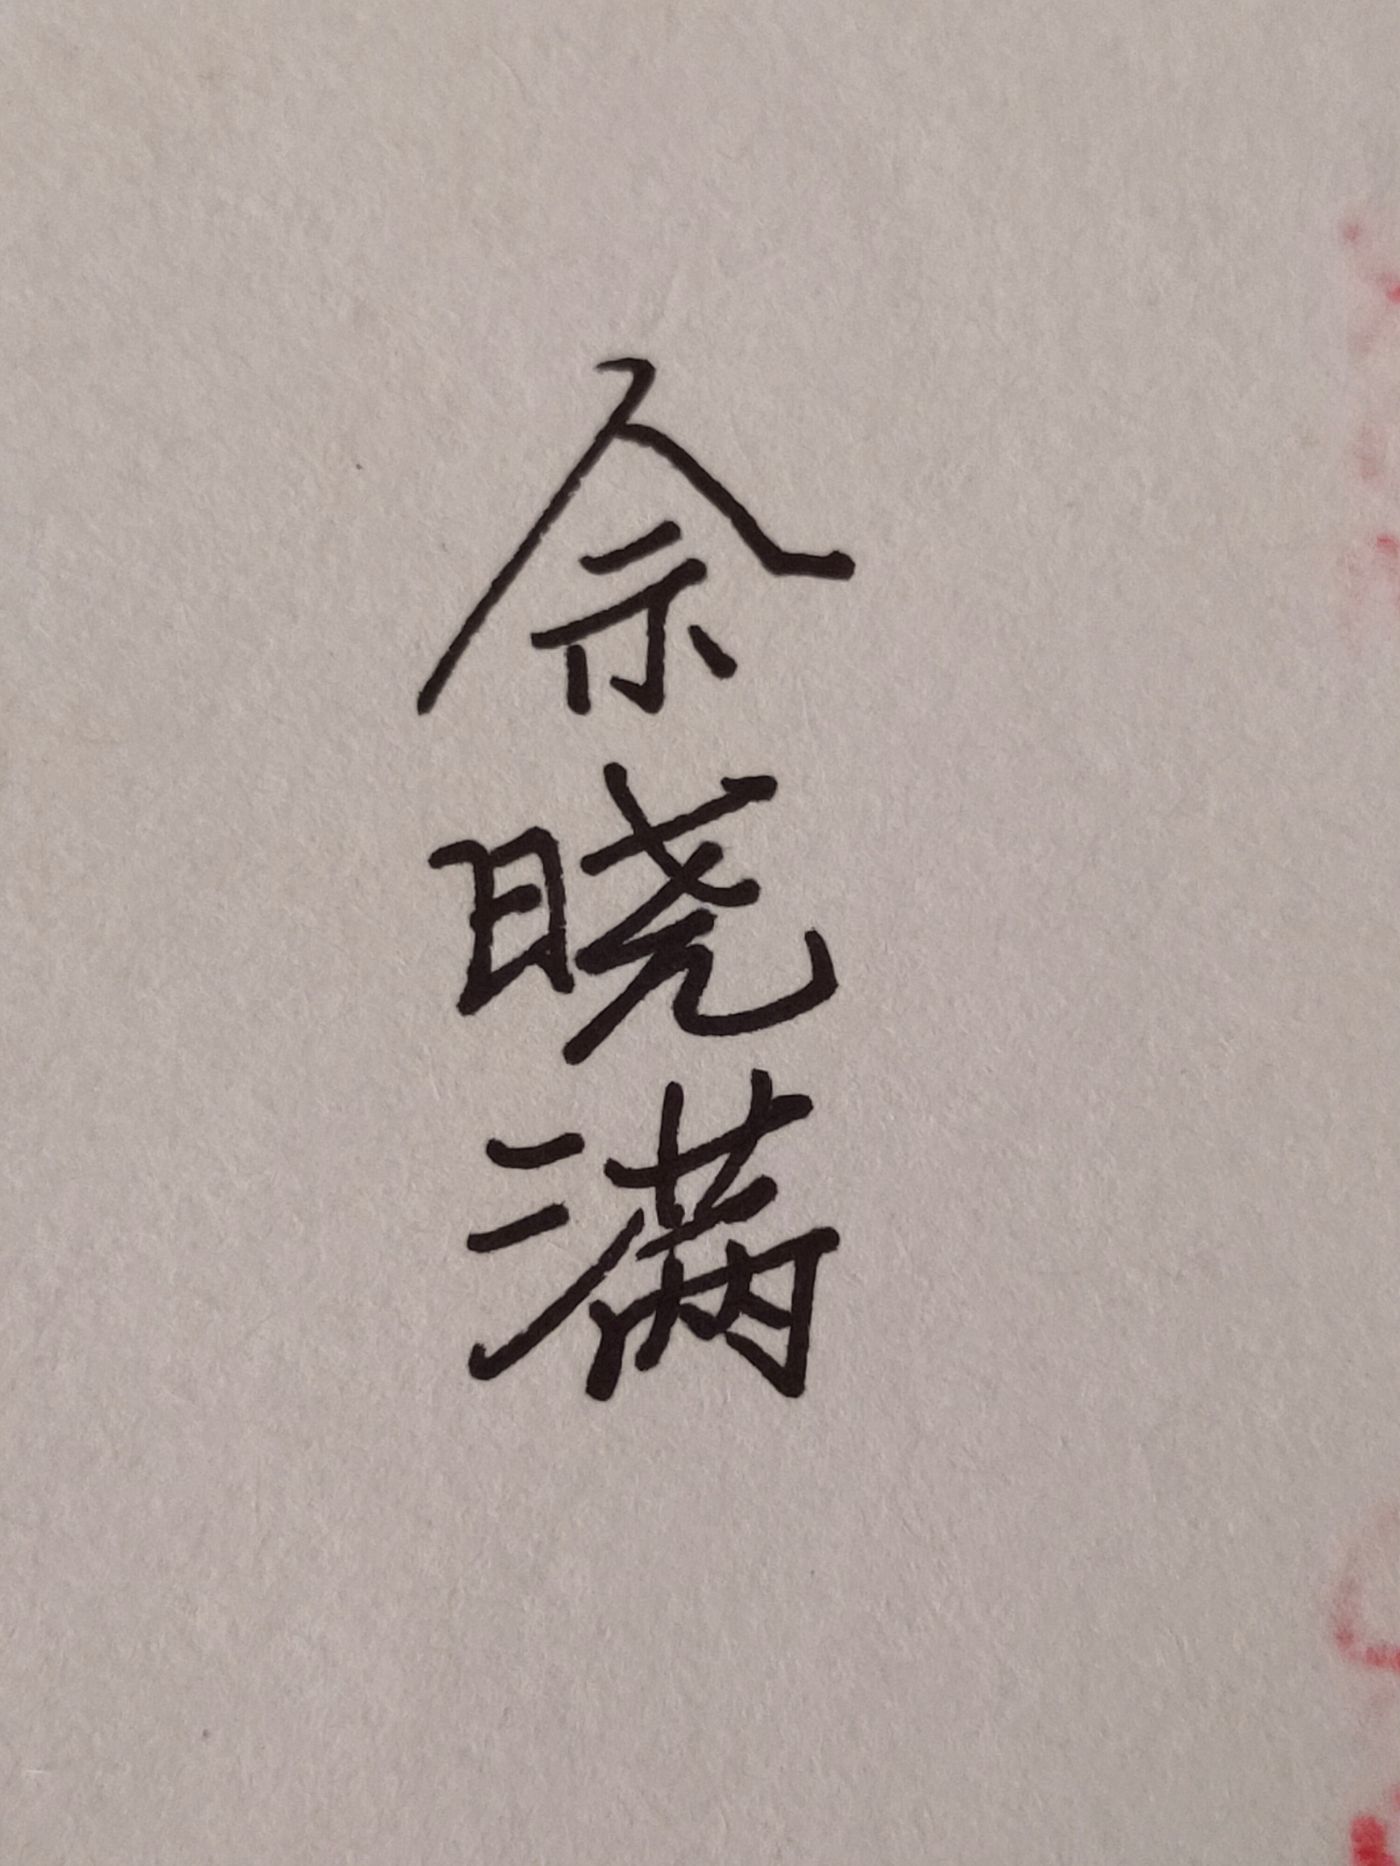 佘晓满